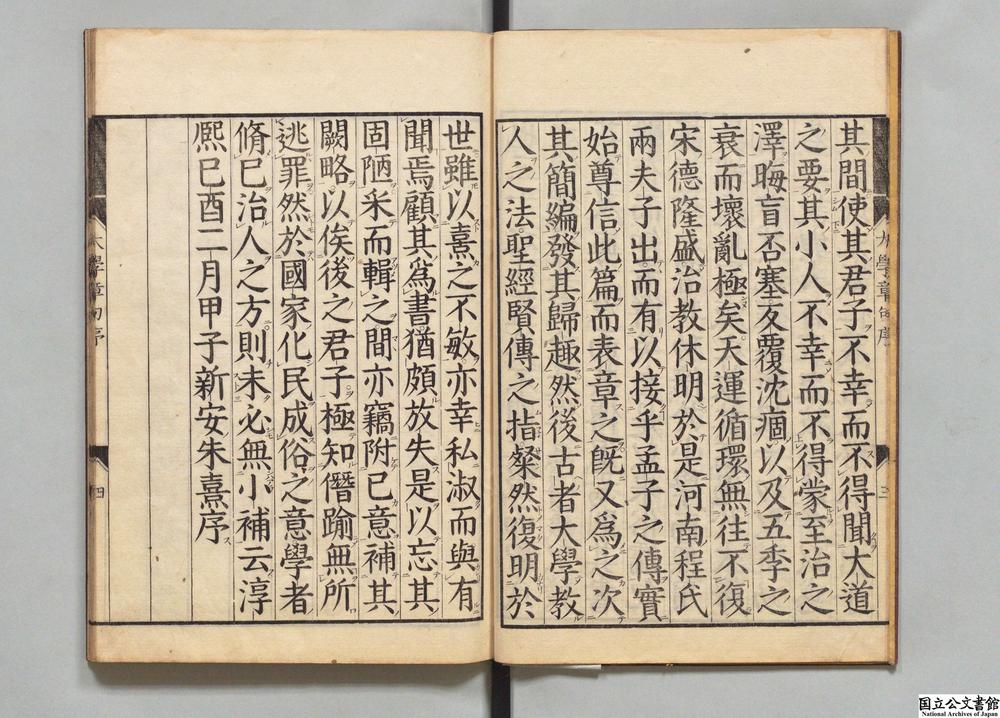 其間使其君子不幸而不得聞大道
之要其小人不幸而不得蒙至治之
澤晦盲否塞反覆沈痼以及五季之
衰而壞亂極矣天運循環無往不復
宋德隆盛治教休明於是河南程氏
兩夫子出而有以接乎孟子之傳實
始尊信此篇而表章之既又爲之次
其簡編發其歸趣然後古者大學教
人之法聖經賢傳之指粲然復明於
世雖以熹之不敏亦幸私淑而與有
聞焉顧其爲書猶頗放失是以忘其
固陋采而輯之間亦竊附已意補其
闕略以俟後之君子極知僭踰無所
逃罪然於國家化民成俗之意學者
脩已治人之方則未必無小補云淳
熈已酉二月甲子新安朱熹序
大學章句序
三
大學章句序
四
国立公文書館
National Archives of Japan